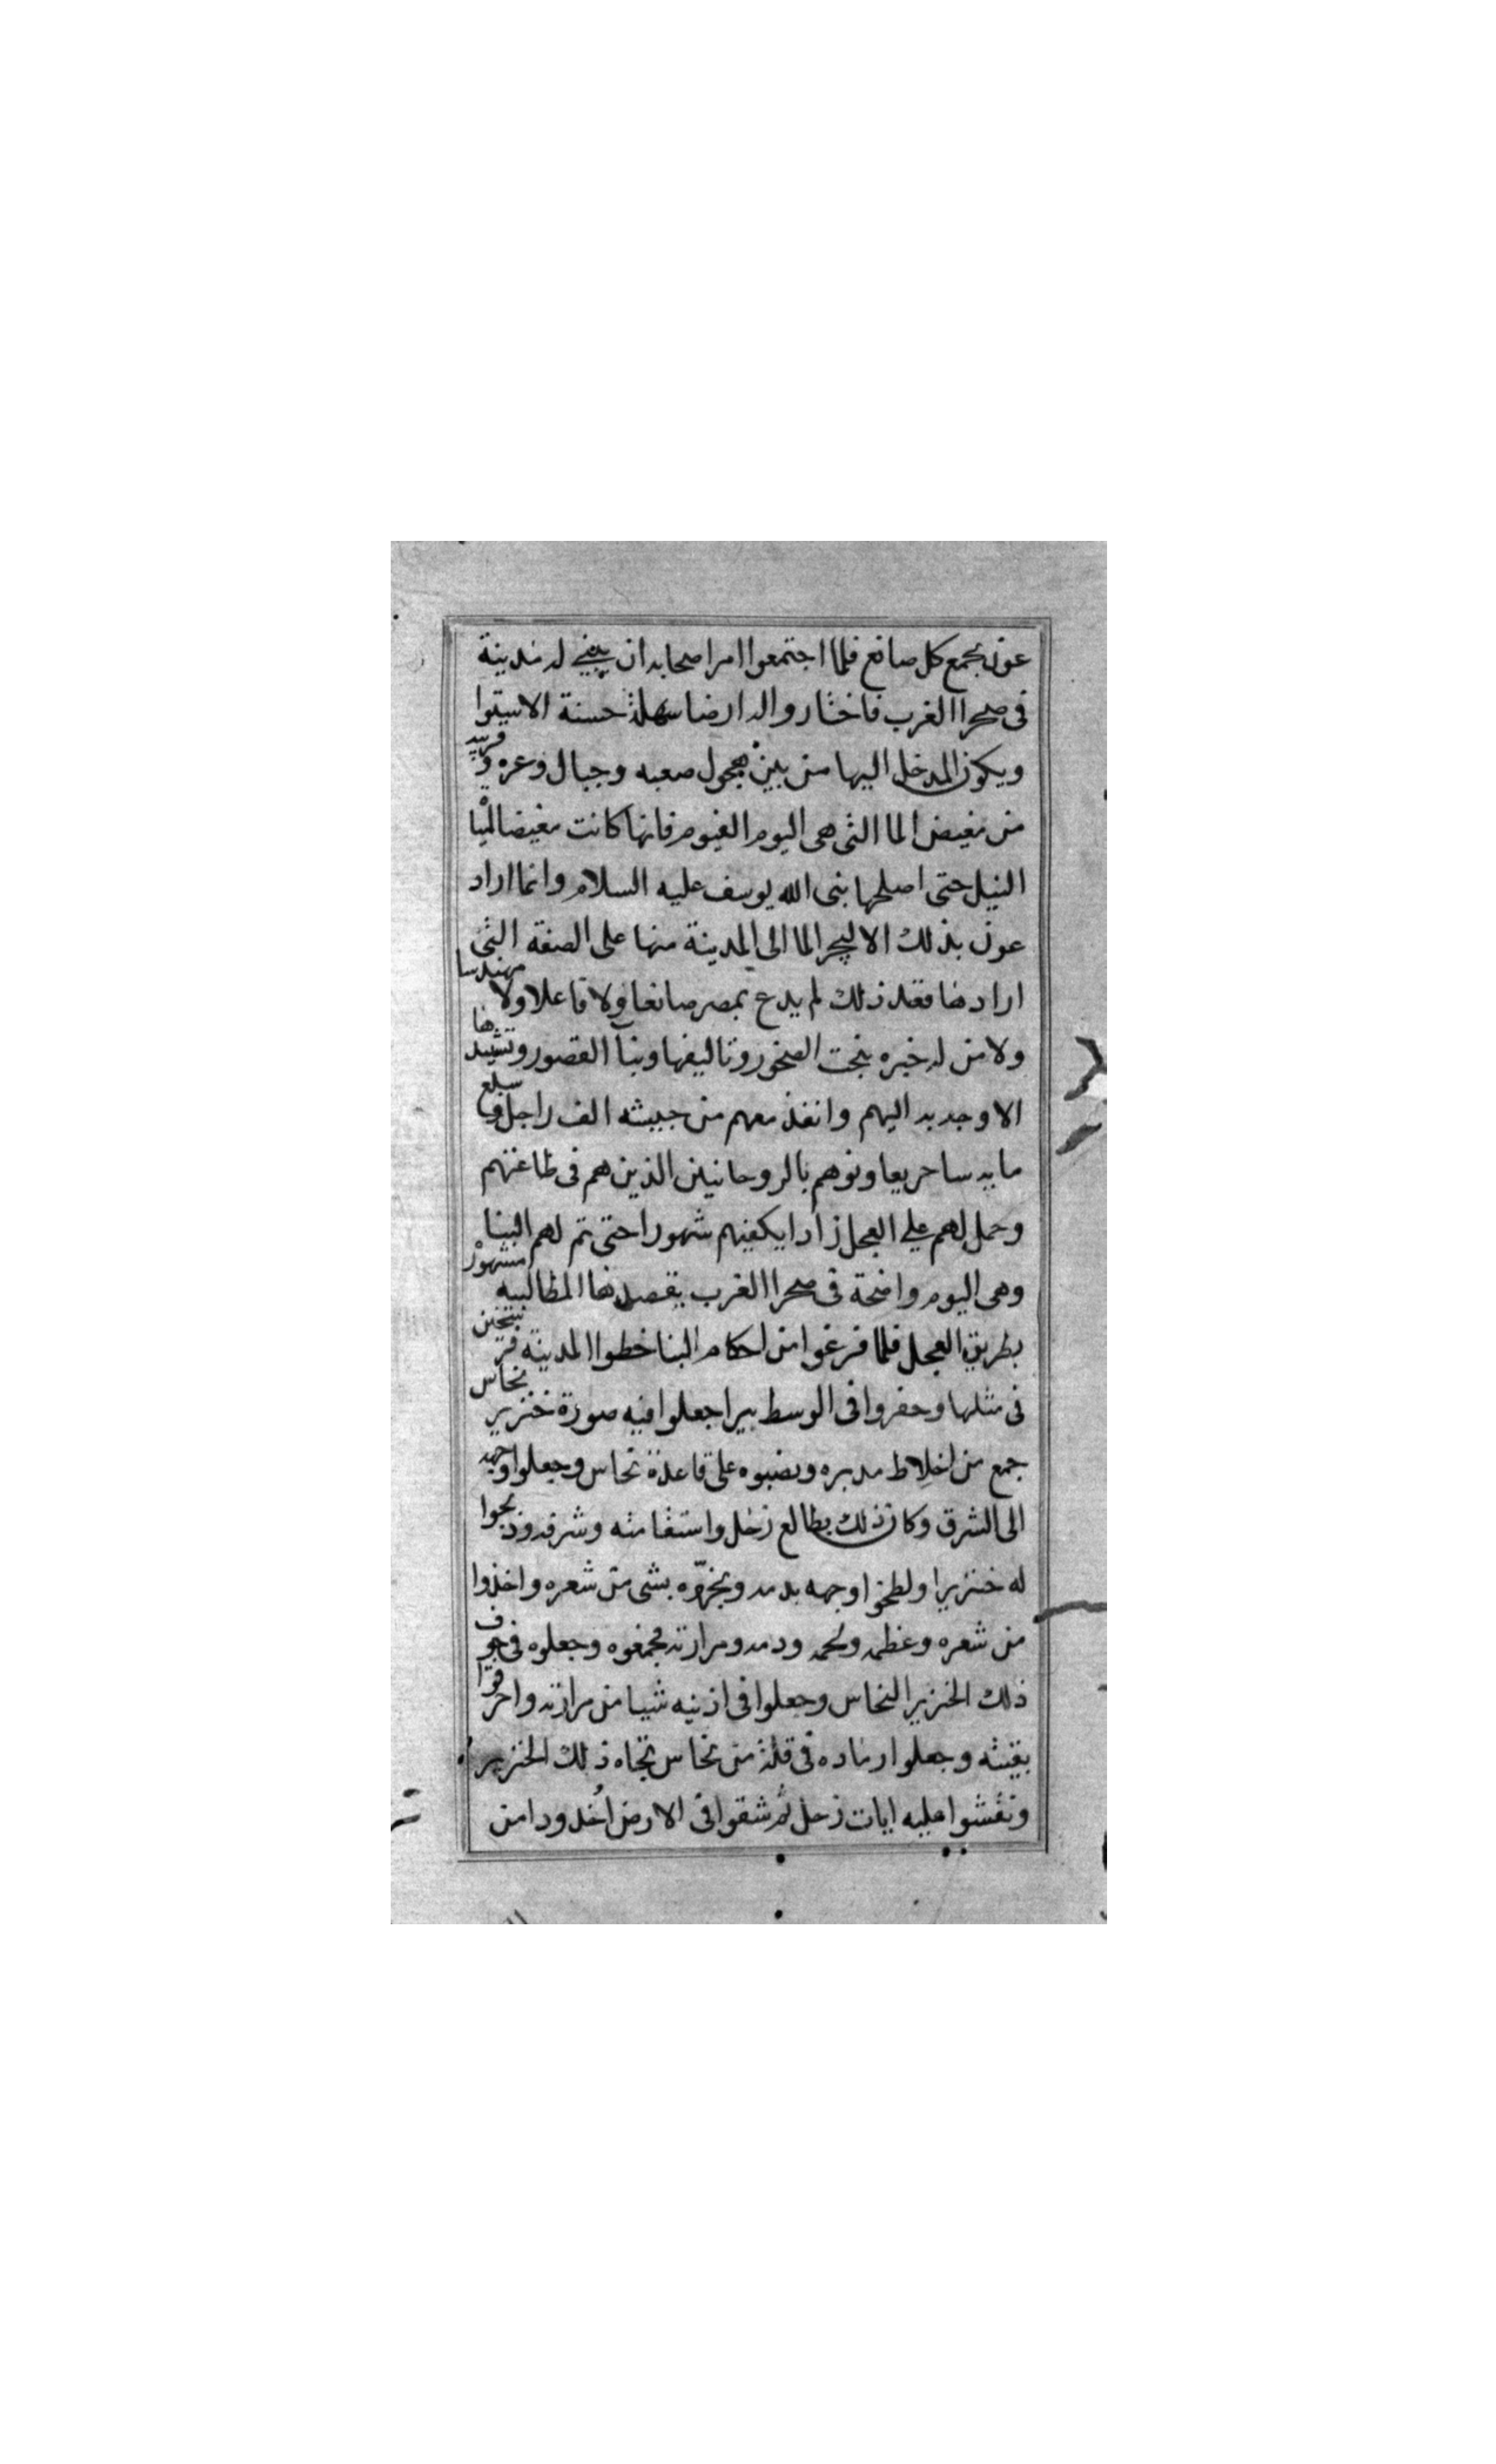 عون بجمع كل صانع فلما اجتمعوا امر اصحابه ان يبنى له مدينة
فى صحرا الغرب فاختاروا له ارضا سهلة حسنة الاستوا
ويكون المدخل اليها من بين حجول صعبه وجبال وعره وقريبه
من مغيض الما التى هى اليوم الفيوم فانها كانت مغيضا لمياه
النيل حتى اصلحها نبى الله يوسف عليه السلام وانما اراد
عون بذلك الا ليجر الما الى المدينة منها على الصفة التى
ارادها فعند ذلك لم يدع بمصر صانعا ولا فاعلا ولا مهندسا
ولا من له خبره بنحت الصخور وتاليفها وبنآ القصور وتشييدها
الا وجد به اليهم وانفذ معهم من جيشه الف راجل وسبع
مايه ساحر يعاونوهم بالروحانيين الذين هم فى طاعتهم
وحمل لهم على العجل زادا يكفيهم شهورا حتى تم لهم البنا
وهى اليوم واضحة فى صحرا الغرب يقصدها المطالبيه مشهور
بطريق العجل فلما فرغوا من احكام البنا خطوا المدينة فرسخين
فى مثلها وحفروا فى الوسط بيرا جعلوا فيه صورة خنزير نحاس
جمع من اخلاط مدبره ونصبوه على قاعدة نحاس وجعلوا وجهه
الى الشرق وكان ذلك بطالع زحل واستقامته وشرفه وذبحوا
له خنزيرا ولطخوا وجهه بدمه وبخروه بشى من شعره واخذوا
من شعره وعظمه ولحمه ودمه ومرارته فجمعوه وجعلوه فى جوف
ذلك الخنزير النحاس وجعلوا فى اذنيه شيا من مرارته واحرقوا
بقيته وجعلوا رماده فى قلة من نحاس تجاه ذلك الخنزير
ونقشوا عليه ايات زحل ثم شقوا فى الارض اخدودا من